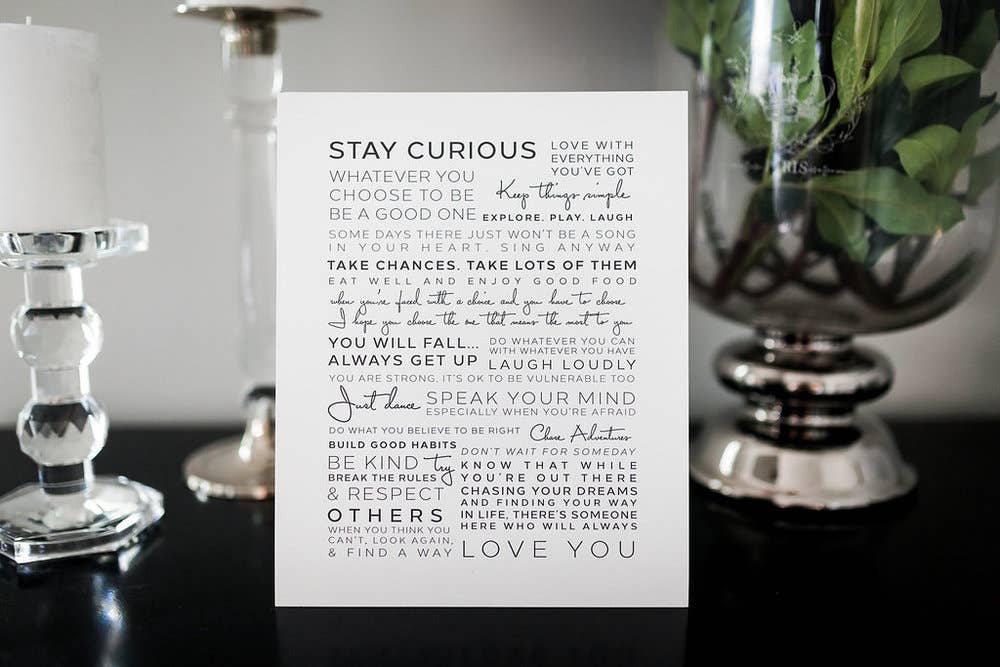 STAY CURIOUS
LOVE WITH
EVERYTHING
YOU'VE GOT
WHATEVER YOU
CHOOSE TO BE
BE A GOOD ONE
Keep things simple
EXPLORE. PLAY. LAUGH
SOME DAYS THERE JUST WON'T BE A SONG
IN YOUR HEART. SING ANYWAY
TAKE CHANCES. TAKE LOTS OF THEM
EAT WELL AND ENJOY GOOD FOOD
when you're faced with a choice and you have to choose
I hope you choose the one that means the most to you
YOU WILL FALL...
ALWAYS GET UP
DO WHATEVER YOU CAN
WITH WHATEVER YOU HAVE
LAUGH LOUDLY
YOU ARE STRONG, IT'S OK TO BE VULNERABLE TOO
Just dance
SPEAK YOUR MIND
ESPECIALLY WHEN YOU'RE AFRAID
DO WHAT YOU BELIEVE TO BE RIGHT
Chase Adventures
BUILD GOOD HABITS
DON'T WAIT FOR SOMEDAY
BE KIND try
BREAK THE RULES
& RESPECT
OTHERS
WHEN YOU THINK YOU
CAN'T, LOOK AGAIN,
& FIND A WAY
KNOW THAT WHILE
YOU'RE OUT THERE
CHASING YOUR DREAMS
AND FINDING YOUR WAY
IN LIFE, THERE'S SOMEONE
HERE WHO WILL ALWAYS
LOVE YOU